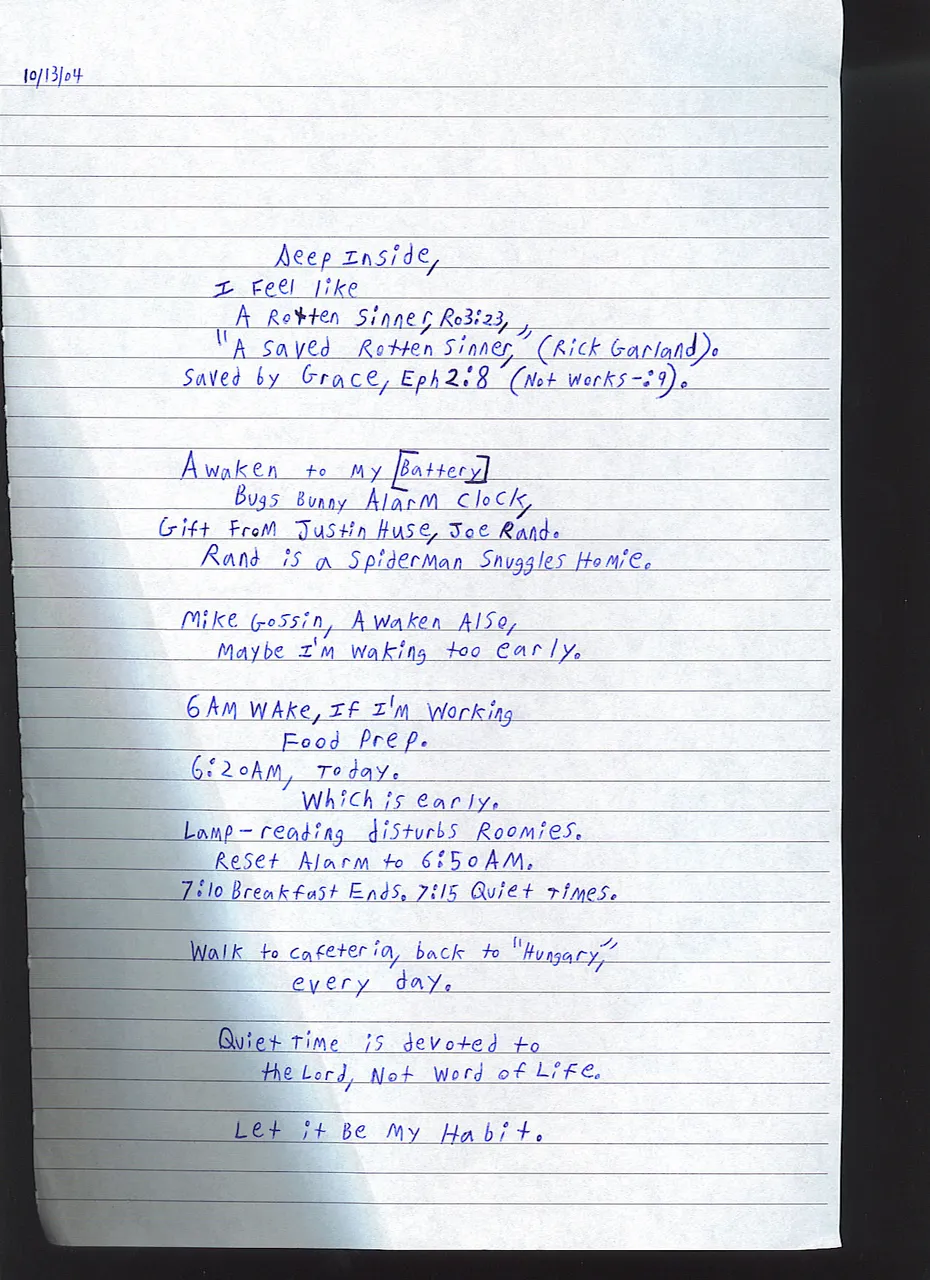 10/13/04
Deep Inside,
I Feel like
A Rotten Sinner, Ro3:23,
"A saved Rotten Sinner," (Rick Garland).
saved by Grace, Eph 2:8 (Not works-:9).
Awaken to my [Battery]
Bugs Bunny Alarm clock,
Gift From Justin Huse, Joe Rand.
Rand is a Spiderman Snuggles Homie.
Mike Gossin, Awaken Also,
Maybe I'm waking too early.
6AM WAke, If I'm Working
Food Prep.
6:20AM, Today.
Which is early.
Lamp-reading disturbs Roomies.
Reset Alarm to 6:50AM.
7:10 Breakfast Ends. 7:15 Quiet Times.
Walk to cafeteria, back to "Hungary,"
every day.
Quiet Time is devoted to
the Lord, Not Word of Life.
Let it Be My Habit.